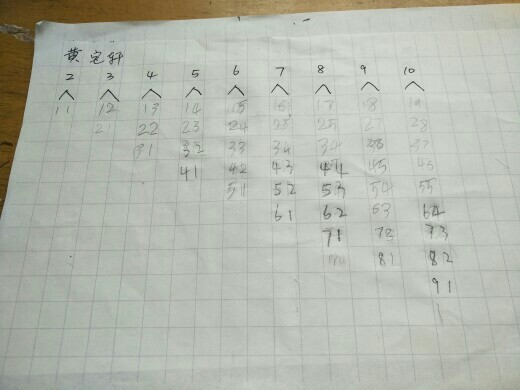 黄宅轩
2 3 4 5 6 7 8 9 10
11 12 13 14 15 16 17 18 19
21 22 23 24 25 25 27 28
31 32 33 34 34 36 37
41 42 43 44 45 45
51 52 53 54 55
61 62 53 64
71 72 73
81 82
91